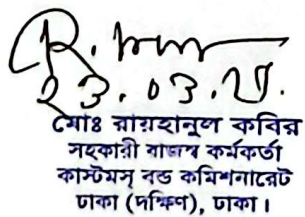 ২৩.০৩.২১.
মোঃ রায়হানুল কবির
সহকারী রাজস্ব কর্মকর্তা
কাস্টমস্ বন্ড কমিশনারেট
ঢাকা (দক্ষিণ), ঢাকা।